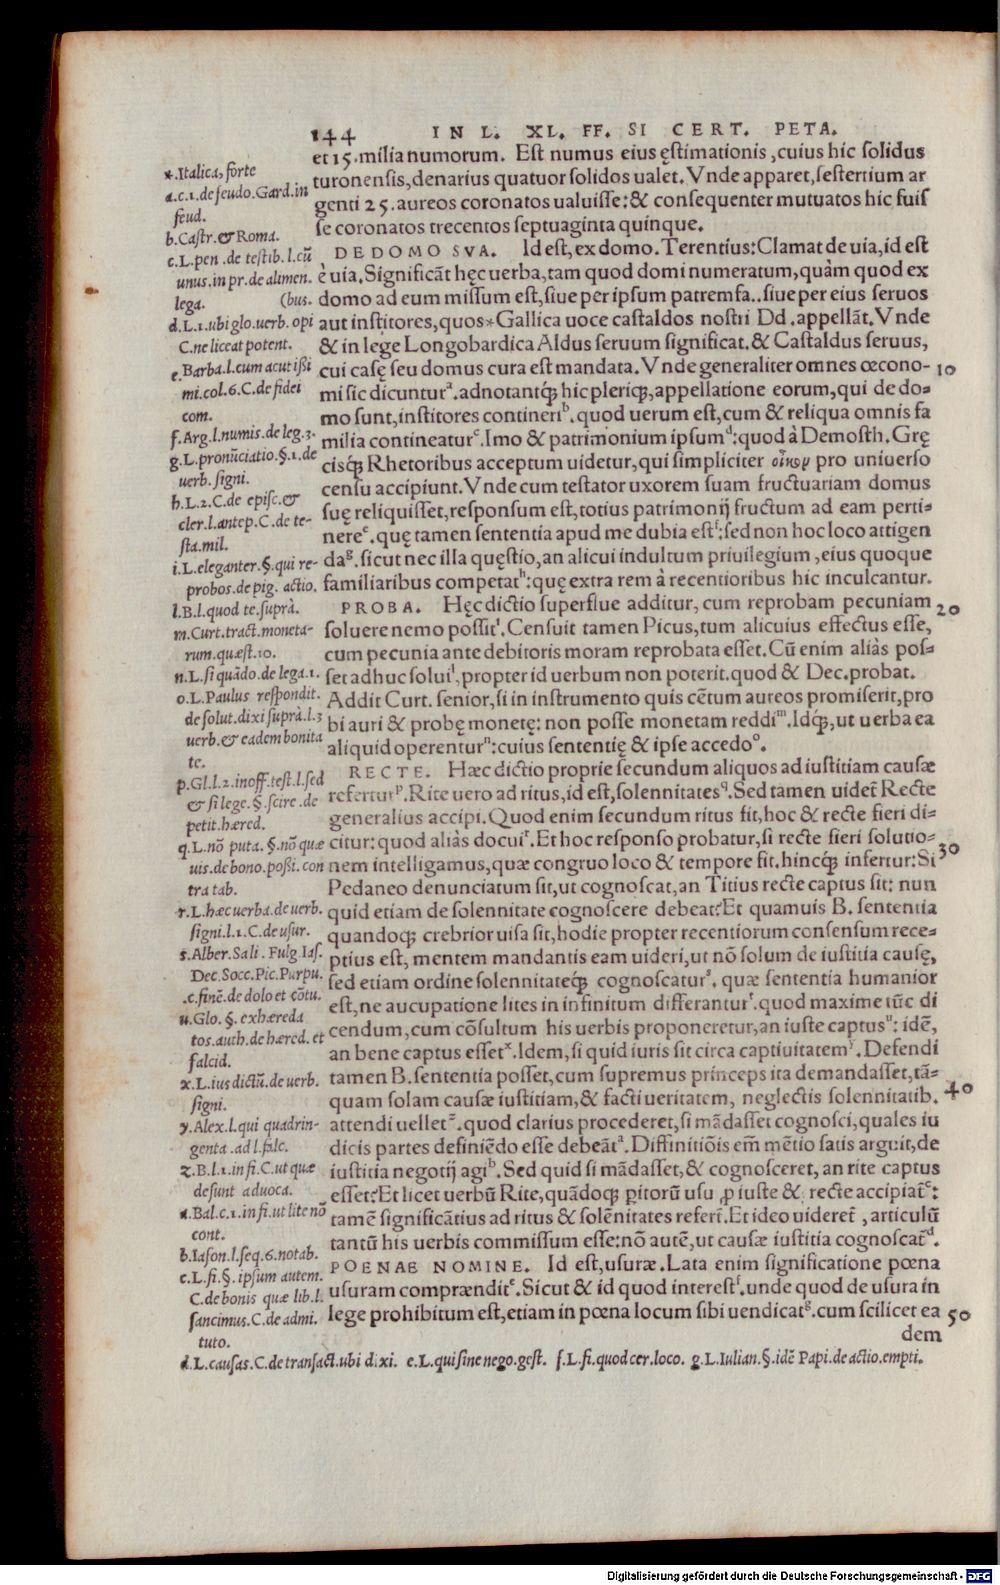 144 IN L. XL. FF. SI CERT. PETA.
et 15.milia numorum. Est numus eius ęstimationis, cuius hic solidus
turonensis, denarius quatuor solidos ualet. Vnde apparet, sestertium ar
genti 25. aureos coronatos ualuisse: & consequenter mutuatos hic fuis
se coronatos trecentos septuaginta quinque.
DE DOMO SVA. Id est, ex domo. Terentius: Clamat de uia, id est
è uia. Significāt hęc uerba, tam quod domi numeratum, quàm quod ex
domo ad eum missum est, siue per ipsum patremfa.. siue per eius seruos
aut institores, quos * Gallica uoce castaldos nostri Dd. appellāt. Vnde
& in lege Longobardica Aldus seruum significat. & Castaldus seruus,
cui casę seu domus cura est mandata. Vnde generaliter omnes œcono- 10
mi sic dicuntur a. adnotantq́; hic pleriq;, appellatione eorum, qui de do=
mo sunt, institores contineri b. quod uerum est, cum & reliqua omnis fa
milia contineatur c. Imo & patrimonium ipsum d: quod à Demosth. Grę
cisq́; Rhetoribus acceptum uidetur, qui simpliciter οἶκον pro uniuerso
censu accipiunt. Vnde cum testator uxorem suam fructuariam domus
suę reliquisset, responsum est, totius patrimonij fructum ad eam perti=
nere e. quę tamen sententia apud me dubia est f: sed non hoc loco attigen
da g. sicut nec illa quęstio, an alicui indultum priuilegium, eius quoque
familiaribus competat h: quę extra rem à recentioribus hic inculcantur.
PROBA. Hęc dictio superflue additur, cum reprobam pecuniam 20
soluere nemo possit i. Censuit tamen Picus, tum alicuius effectus esse,
cum pecunia ante debitoris moram reprobata esset. Cū enim aliàs pos=
set adhuc solui l, propter id uerbum non poterit. quod & Dec. probat.
Addit Curt. senior, si in instrumento quis cētum aureos promiserit, pro
bi auri & probę monetę: non posse monetam reddi m. Idq́;, ut uerba ea
aliquid operentur n: cuius sententię & ipse accedo o.
RECTE. Hæc dictio proprie secundum aliquos ad iustitiam causæ
refertur p. Rite uero ad ritus, id est, solennitates q. Sed tamen uidet̃ Recte
generalius accipi. Quod enim secundum ritus fit, hoc & recte fieri di=
citur: quod aliàs docui r. Et hoc responso probatur, si recte fieri solutio=
nem intelligamus, quæ congruo loco & tempore fit. hincq́; infertur: Si 30
Pedaneo denunciatum sit, ut cognoscat, an Titius recte captus sit: nun
quid etiam de solennitate cognoscere debeat? Et quamuis B. sententia
quandoq; crebrior uisa sit, hodie propter recentiorum consensum rece=
ptius est, mentem mandantis eam uideri, ut nō solum de iustitia causę,
sed etiam ordine solennitateq́; cognoscatur s. quæ sententia humanior
est, ne aucupatione lites in infinitum differantur t. quod maxime tūc di
cendum, cum cōsultum his uerbis proponeretur, an iuste captus u: idē,
an bene captus esset x. Idem, si quid iuris sit circa captiuitatem y. Defendi
tamen B. sententia posset, cum supremus princeps ita demandasset, tā=
quam solam causæ iustitiam, & facti ueritatem, neglectis solennitatib. 40
attendi uellet z. quod clarius procederet, si mādasset cognosci, quales iu
dicis partes definiēdo esse debeāt a. Diffinitiōis em̄ mētio satis arguit, de
iustitia negotij agi b. Sed quid si mādasset, & cognosceret, an rite captus
esset? Et licet uerbū Rite, quādoq; peritorū usu pro iuste & recte accipiat̃ c:
tamē significātius ad ritus & solēnitates refert̃. Et ideo uideret̃, articulū
tantū his uerbis commissum esse: nō autē, ut causæ iustitia cognoscat̃ d.
POENAE NOMINE. Id est, usuræ. Lata enim significatione pœna
usuram comprændit e. Sicut & id quod interest f. unde quod de usura in
lege prohibitum est, etiam in pœna locum sibi uendicat g. cum scilicet ea 50
dem
*.Italica, forte
a.c.1.de feudo.Gard.in
feud.
b.Castr.& Roma.
c.L.pen.de testib.l.cū
unus.in pr.de alimen.
lega. (bus.
d.L.1.ubi glo.uerb.opi
C.ne liceat potent.
e.Barba.l.cum acutissi
mi.col.6.C.de fidei
com.
f.Arg.l.numis.de leg.3.
g.L.pronūciatio.§.1.de
uerb.signi.
h.L.2.C.de episc.&
cler.l.antep.C.de te-
sta.mil.
i.L.eleganter.§.qui re-
probos.de pig. actio.
l.B.l.quod te.suprà.
m.Curt.tract.moneta-
rum.quæst.10.
n.L.si quādo.de lega.1.
o.L.Paulus respondit.
de solut.dixi suprà.l.3
uerb.& eadem bonita
te.
p.Gl.l.2.inoff.test.l.sed
& si lege.§.scire.de
petit.hæred.
q.L.nō puta.§.nō quæ
uis.de bono.possi.con
tra tab.
r.L.hæc uerba.de uerb.
signi.l.1.C.de usur.
s.Alber.Sali.Fulg.Ias.
Dec.Socc.Pic.Purpu.
.c.finē.de dolo et cōtu.
u.Glo.§.exhæreda
tos.auth.de hæred.et
falcid.
x.L.ius dictū.de uerb.
signi.
y.Alex.l.qui quadrin-
genta.ad l.falc.
z.B.l.1.in fi.C.ut quæ
desunt aduoca.
a.Bal.c.1.in fi.ut lite nō
cont.
b.Iason.l.seq.6.notab.
c.L.fi.§.ipsum autem.
C.de bonis quæ lib.l.
sancimus.C.de admi.
tuto.
d.L.causas.C.de transact.ubi dixi. e.L.qui sine nego.gest. f.L.fi.quod cer.loco. g.L.Iulian.§.idē Papi.de actio.empti.
Digitalisierung gefördert durch die Deutsche Forschungsgemeinschaft - DFG